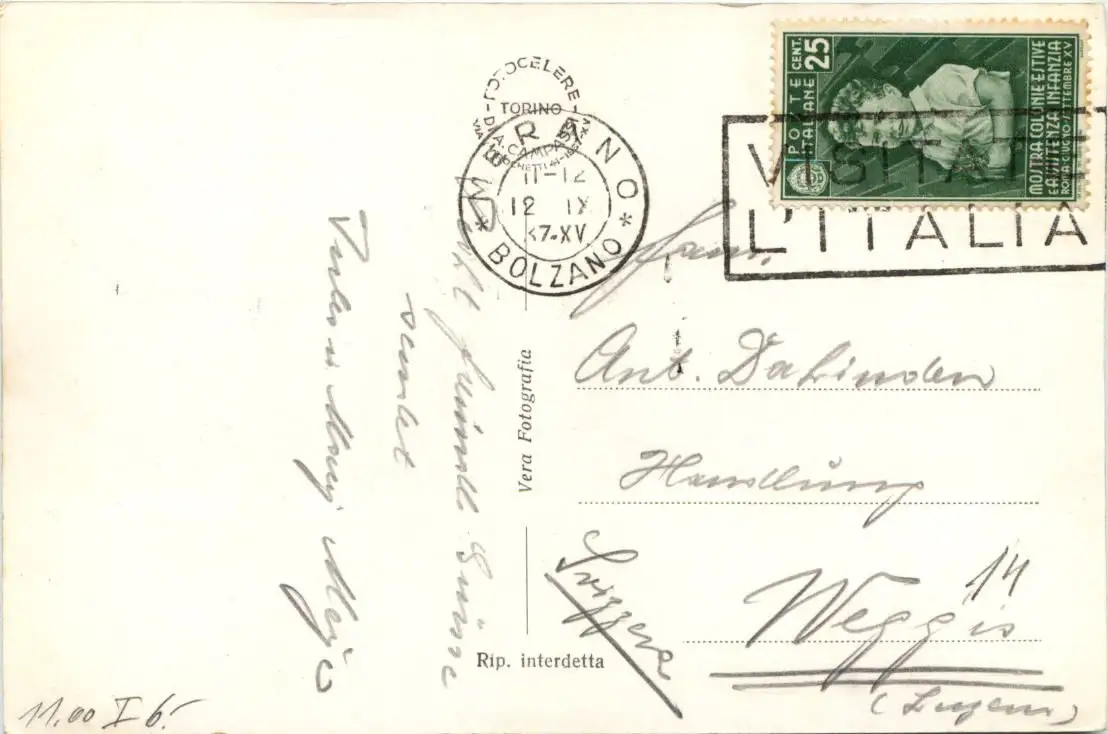 POSTE ITALIANE CENT. 25
MOSTRA COLONIE ESTIVE
E ASSISTENZA INFANZIA
ROMA GIUGNO-SETTEMBRE XV
VISITATE
L'ITALIA
FOTOCELERE
TORINO
A. CAMPASSI
MERANO
11-12
12 IX
37-XV
* BOLZANO *
Fam.
Ant. Dahinden
Handlung
14
Weggis
(Luzern)
Svizzera
Familie
sendet
Vera Fotografia
Rip. interdetta
11.00 I 6.-